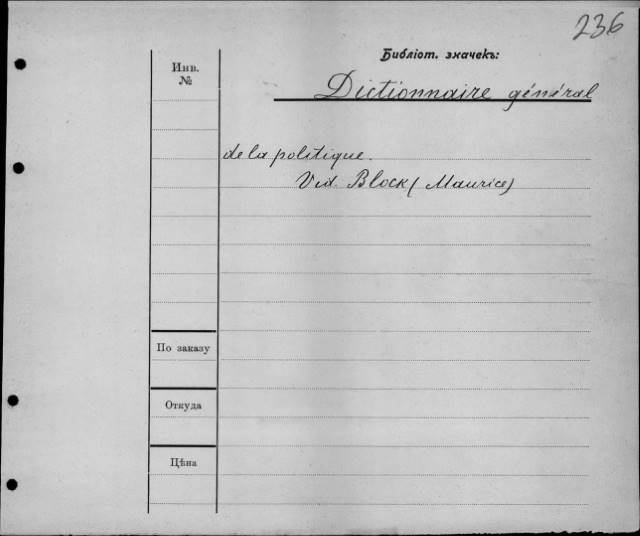 236
Библіот. значекъ:
Инв.
№
Dictionnaire général
de la politique.
Vid. Block (Maurice)
По заказу
Откуда
Цѣна